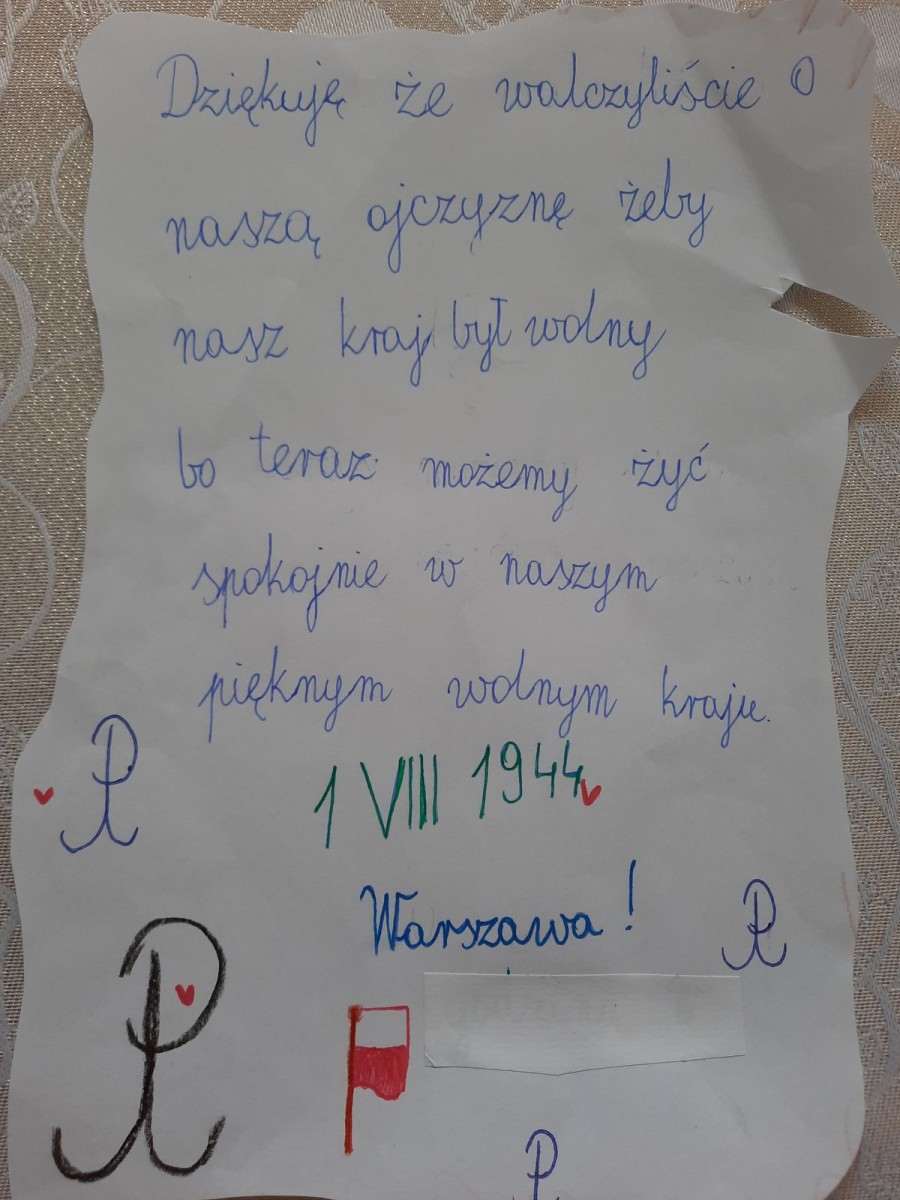 Dziękuję że walczyliście o
naszą ojczyznę żeby
nasz kraj był wolny
bo teraz możemy żyć
spokojnie w naszym
pięknym wolnym kraju.
1 VIII 1944
Warszawa!